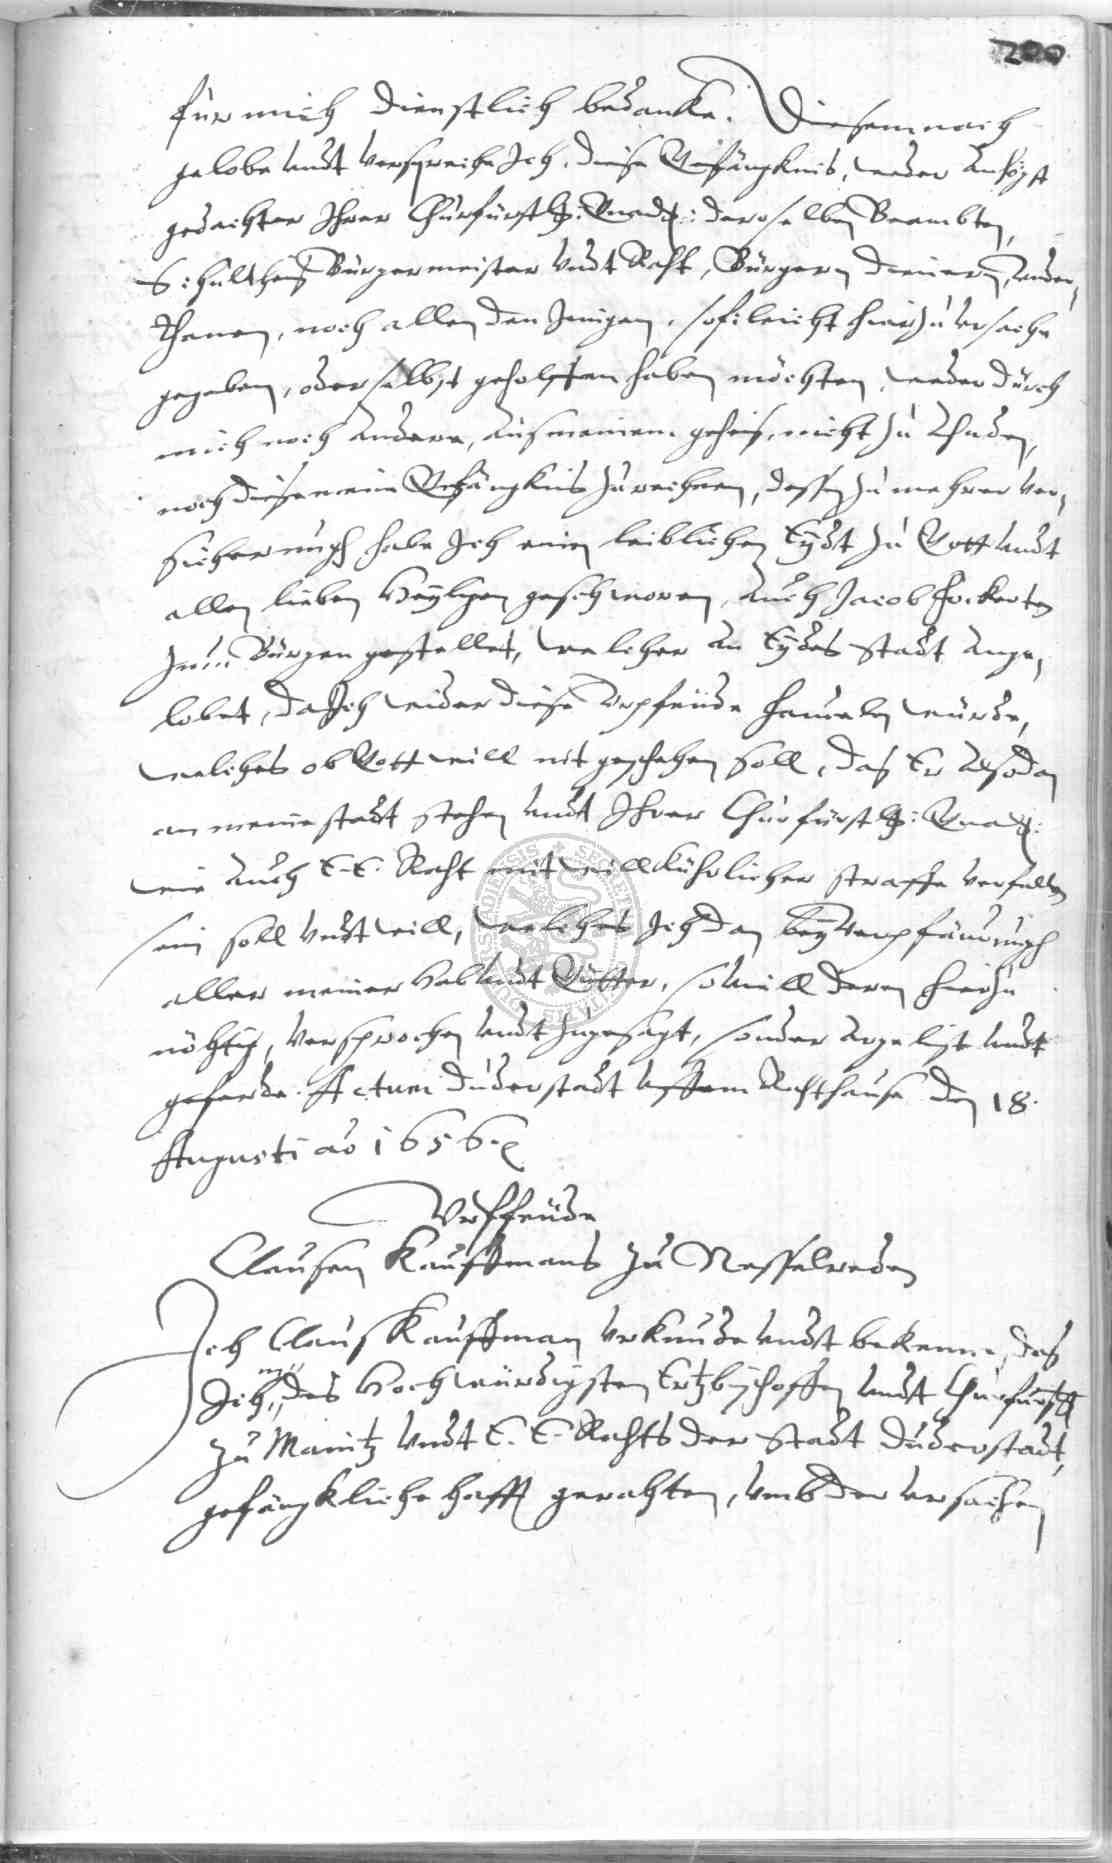 200
für mich dienstlich bedancke. Diesemnach
gelobe undt verspreche Ich, diese Gefängknis, weder an höchst
gedachter Ihrer Churfürstl: Gnad: deroselben Beambten,
Schultheiß Bürgermeister undt Raht, Bürgern dienern, under,
thanen, noch allen den Jenigen, so vileicht hierzu ursache
gegeben, oder selbst geholffen haben möchten, weder durch
mich noch andere, aus meinem geheis, nicht zu Ahnden,
noch diese meine Gefängknis zurechnen, dessen zu mehrer ver,
sicherungh habe Ich einen leiblichen Eydt zu Gott undt
allen lieben Heyligen geschworen, auch Jacob Fockerten
zum Bürgen gestellet, welcher an Eydes stadt ange,
lobet, da Ich wider diese Urpfeide handeln würde,
welches ob Gott will nit geschehen soll, das Er alsodan
an meine stadt stehen undt Ihrer Churfürstl: Gnad:
wie auch E. E. Raht mit willkührlicher straffe verfallen
sein soll undt will, welches Ich dan bey verpfändungh
aller meiner Hab undt Gütter, so viell deren hierzu
nöhtig, versprochen undt zugesagt, sonder argelist undt
geferde. Actum Duderstadt uffem Rahthause den 18.
Augusti ao 1656.
Urffeide
Clausen Kauffmans zu Nesselreden
Ich Claus Kauffman urkunde undt bekenne, das
Ich in des Hochwürdigsten Ertzbischoffen undt Churfürstl
zu Maintz undt E. E. Rahts der Stadt Duderstadt,
gefängkliche hafft gerahten, umb der ursachen